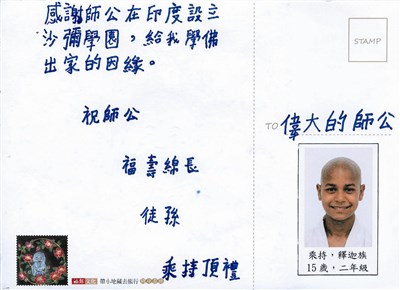 感謝師公在印度設立
沙彌學園，給我學佛
出家的因緣。
祝師公
福壽綿長
徒孫
乘持頂禮
帶小地藏去旅行
STAMP
TO 偉大的師公
乘持，釋迦族
15歲，二年級